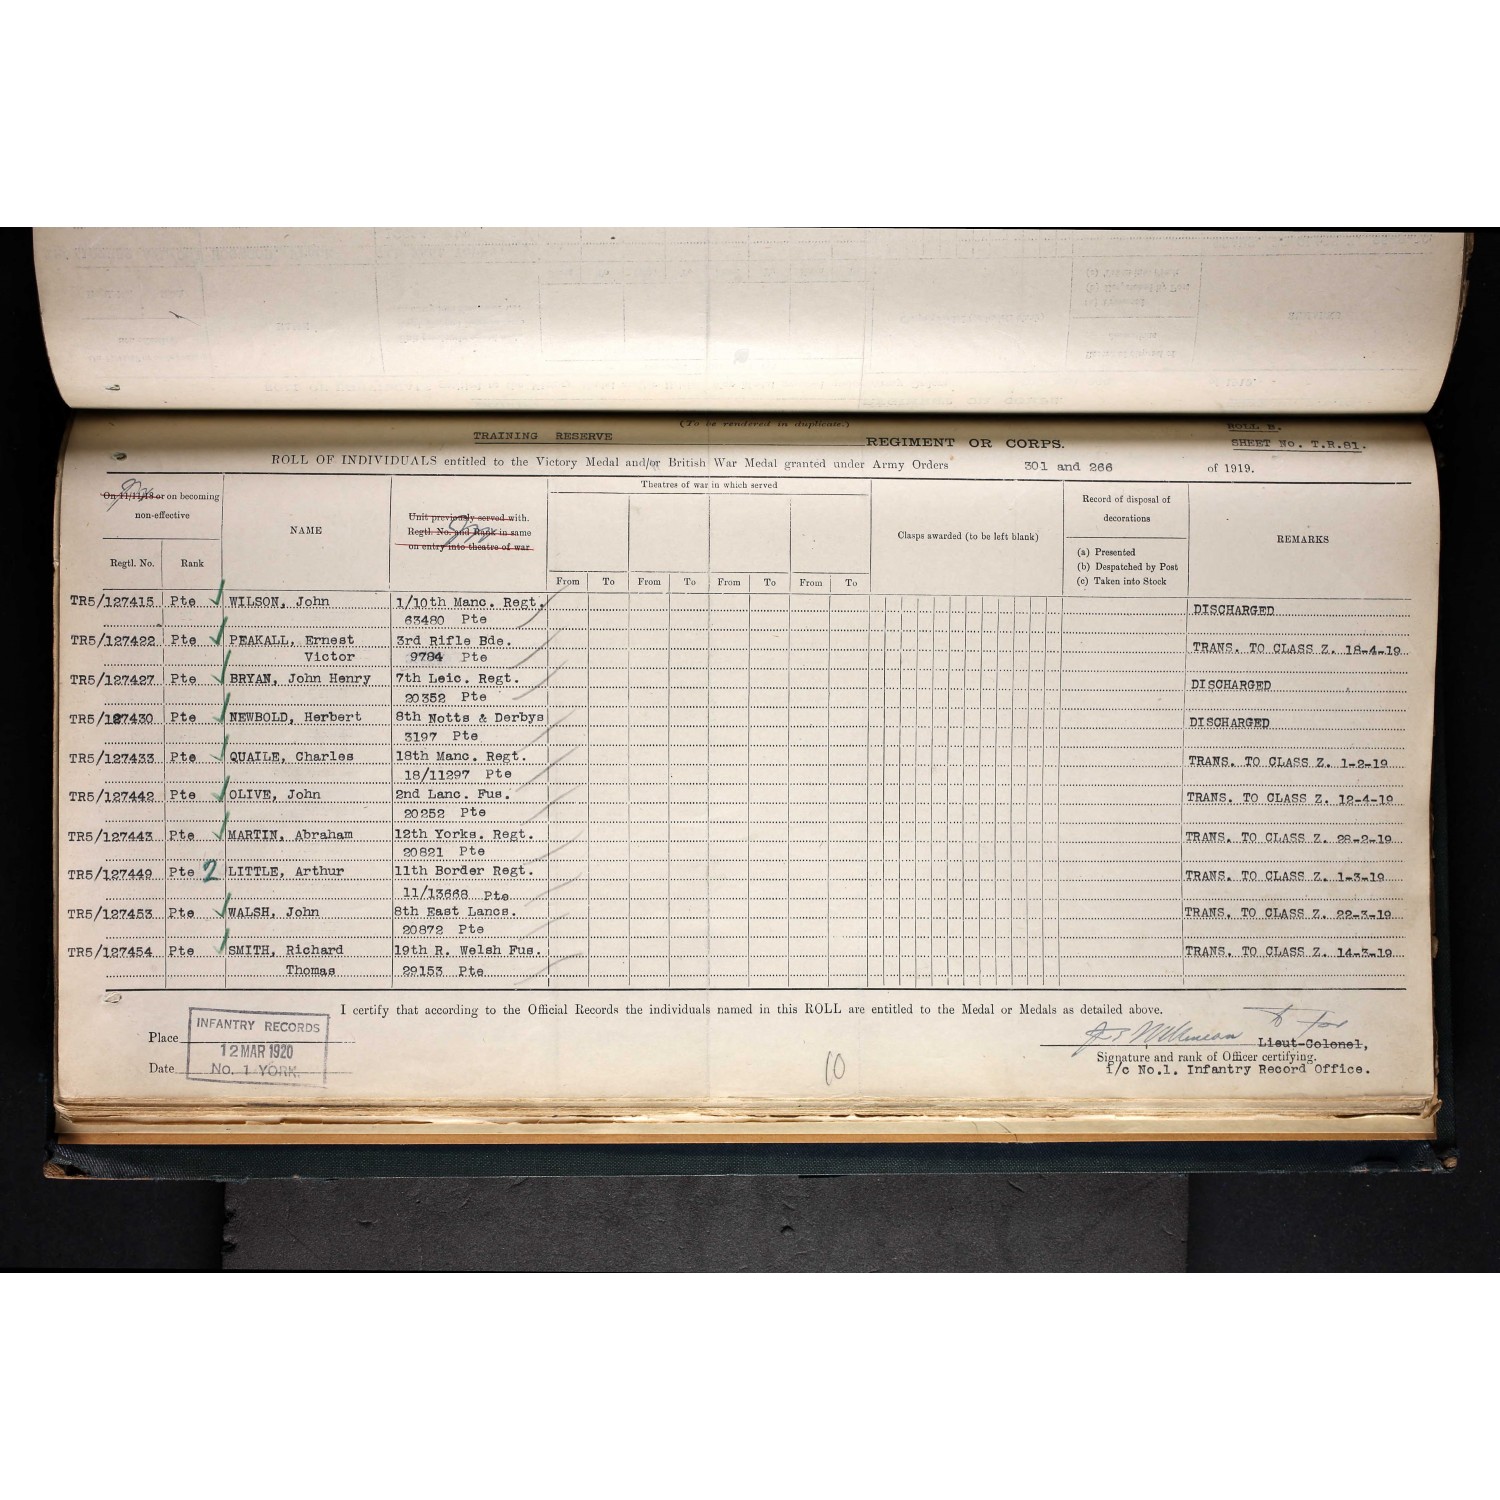 (To be rendered in duplicate.)
ROLL B.
TRAINING RESERVE REGIMENT OR CORPS. SHEET No. T.R.81.
ROLL OF INDIVIDUALS entitled to the Victory Medal and/or British War Medal granted under Army Orders 301 and 266 of 1919.
On 11/11/18 or on becoming non-effective
Regtl. No. Rank
NAME
Unit previously served with.
Regtl. No. and Rank in same
on entry into theatre of war
Theatres of war in which served
From To From To From To From To
Clasps awarded (to be left blank)
Record of disposal of decorations
(a) Presented
(b) Despatched by Post
(c) Taken into Stock
REMARKS
TR5/127415 Pte WILSON, John 1/10th Manc. Regt. DISCHARGED
63480 Pte
TR5/127422 Pte PEAKALL, Ernest 3rd Rifle Bde. TRANS. TO CLASS Z. 18-4-19
Victor 9784 Pte
TR5/127427 Pte BRYAN, John Henry 7th Leic. Regt. DISCHARGED
20352 Pte
TR5/127430 Pte NEWBOLD, Herbert 8th Notts & Derbys DISCHARGED
3197 Pte
TR5/127433 Pte QUAILE, Charles 18th Manc. Regt. TRANS. TO CLASS Z. 1-2-19
18/11297 Pte
TR5/127442 Pte OLIVE, John 2nd Lanc. Fus. TRANS. TO CLASS Z. 12-4-19
20252 Pte
TR5/127443 Pte MARTIN, Abraham 12th Yorks. Regt. TRANS. TO CLASS Z. 28-2-19
20821 Pte
TR5/127449 Pte 2 LITTLE, Arthur 11th Border Regt. TRANS. TO CLASS Z. 1-3-19
11/13668 Pte
TR5/127453 Pte WALSH, John 8th East Lancs. TRANS. TO CLASS Z. 22-3-19
20872 Pte
TR5/127454 Pte SMITH, Richard 19th R. Welsh Fus. TRANS. TO CLASS Z. 14-3-19
Thomas 29153 Pte
I certify that according to the Official Records the individuals named in this ROLL are entitled to the Medal or Medals as detailed above.
Place
Date
INFANTRY RECORDS
12 MAR 1920
No. 1 YORK.
10
Lieut-Colonel,
Signature and rank of Officer certifying.
i/c No.1. Infantry Record Office.